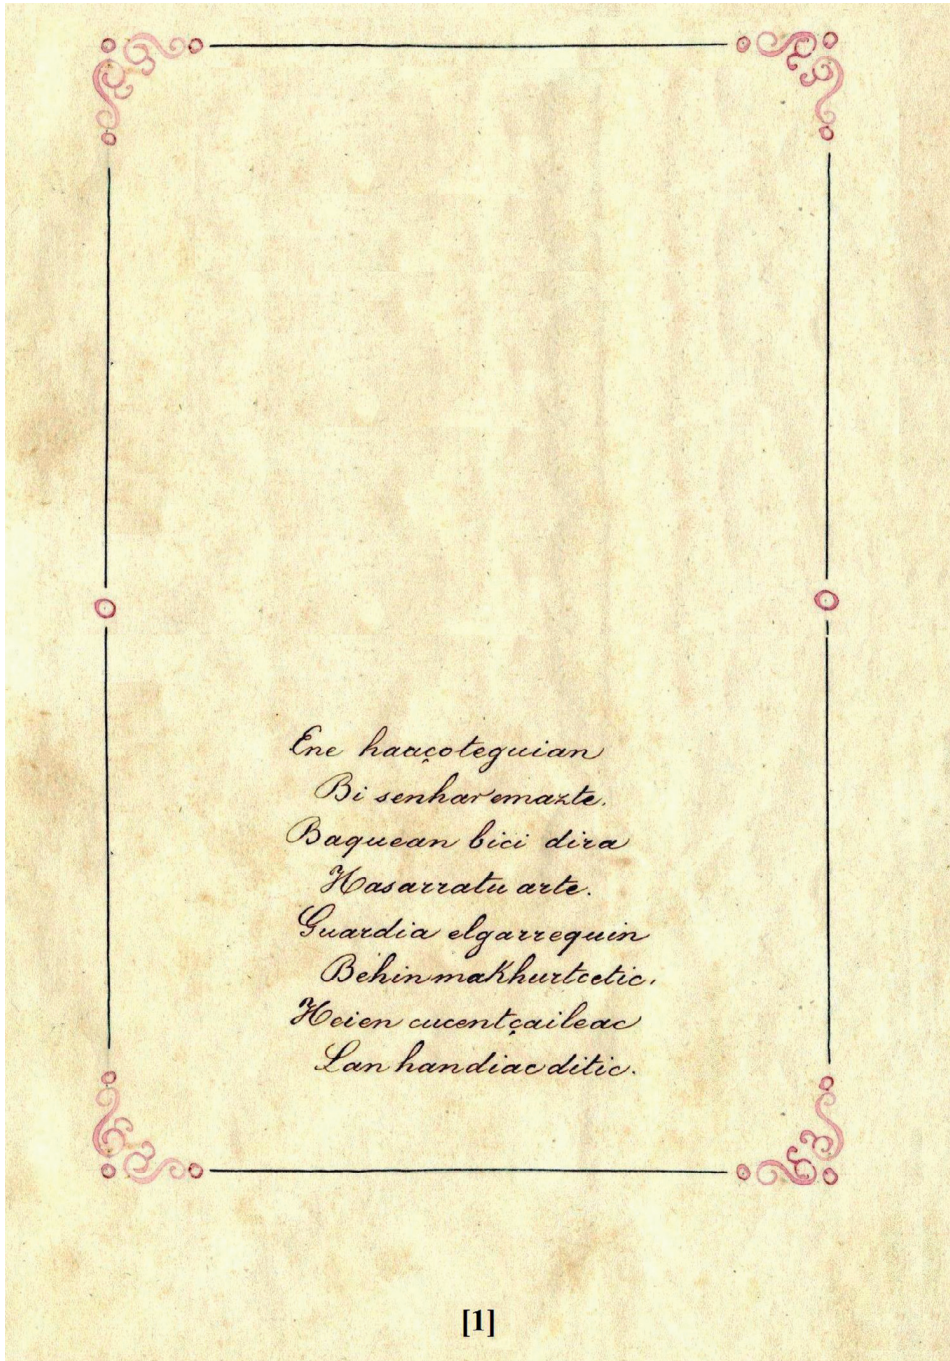 Ene haaçoteguian
Bi senhar emazte.
Baquean bici dira
Hasarratu arte.
Guardia elgarrequin
Behin makhurtcetic.
Heien cucentçaileac
Lan handiac ditic.
[1]